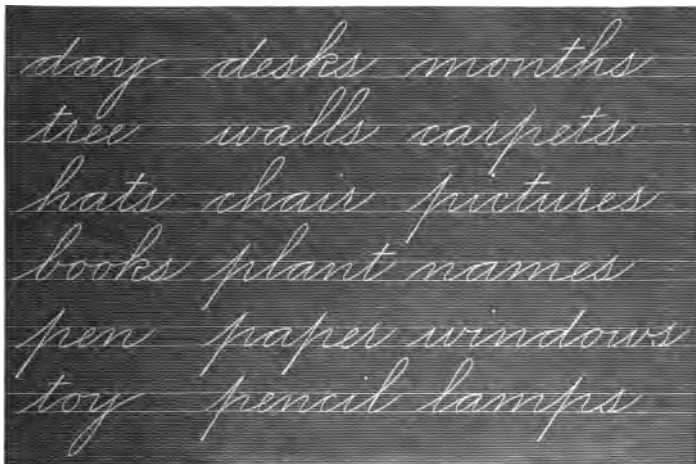 day desks months
tree walls carpets
hats chair pictures
books plant names
pen paper windows
toy pencil lamps